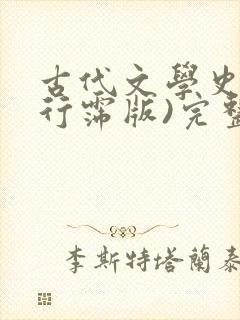 古代文學史
行霈版)完整
李斯特塔蘭泰